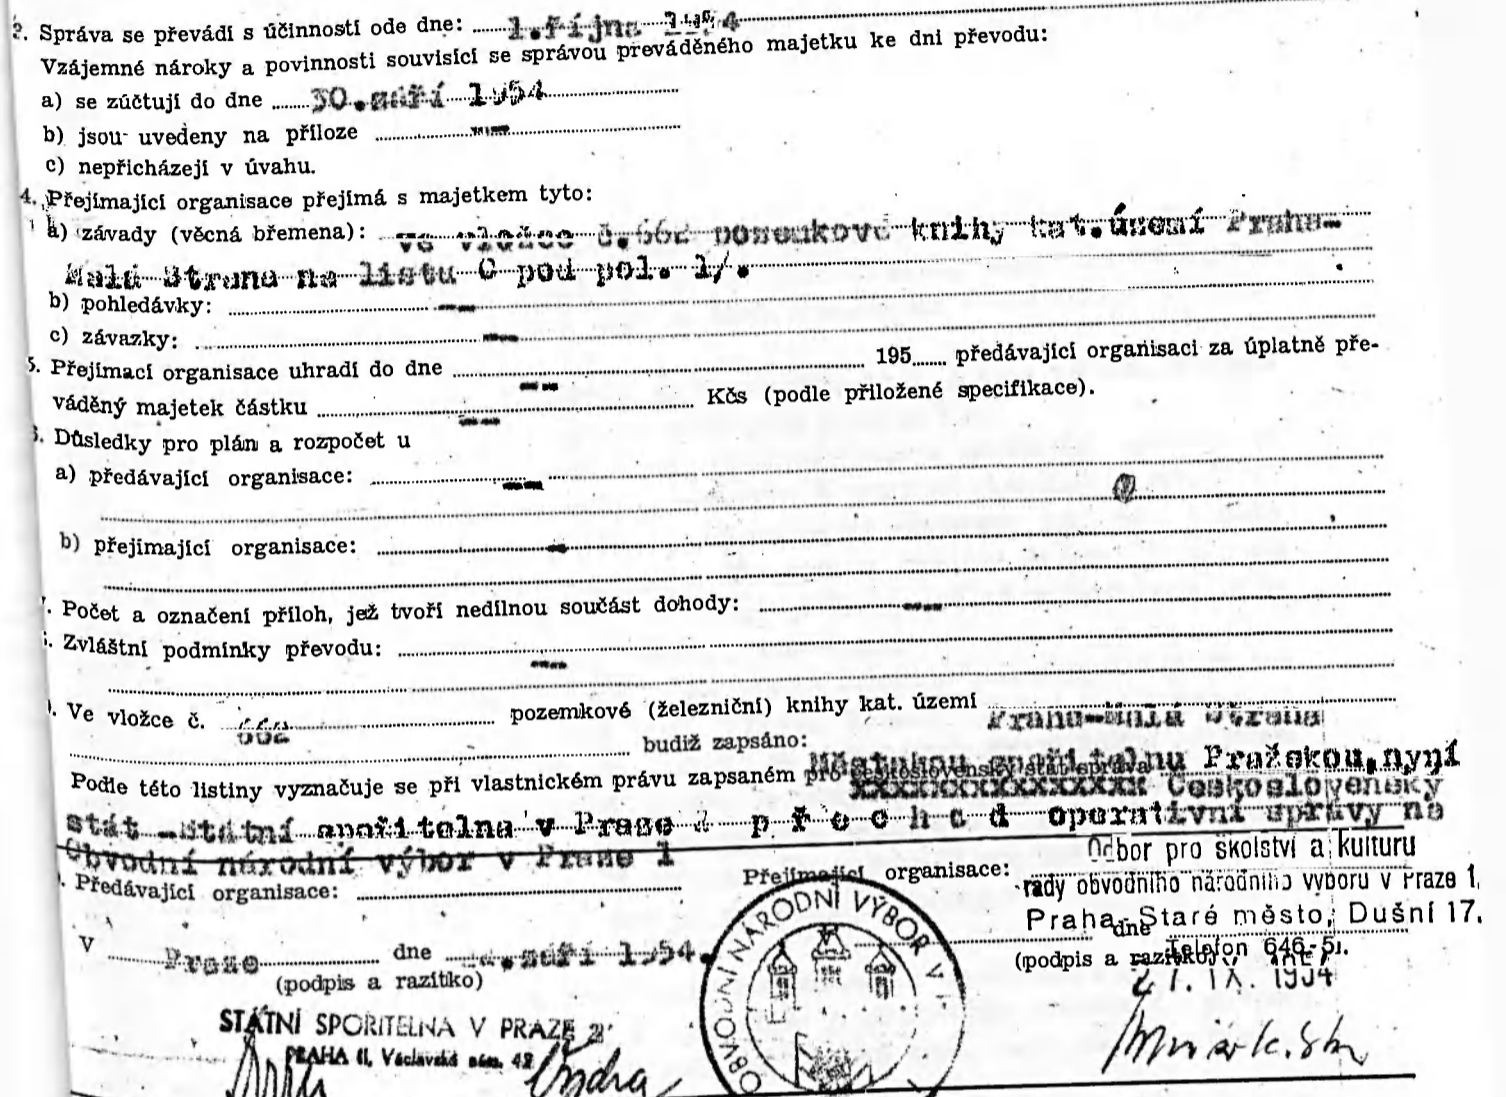 Správa se převádí s účinností ode dne: 1.října
Vzájemné nároky a povinnosti souvisící se správou převáděného majetku ke dni převodu:
a) se zúčtují do dne 30.září 1954
b) jsou uvedeny na příloze --
c) nepřicházejí v úvahu.
4. Přejímající organisace přejímá s majetkem tyto:
a) závady (věcná břemena): ve vložce č.662 pozemkové knihy kat.území Praha-
Malá Strana na listu C pod pol. 1/.
b) pohledávky: ---
c) závazky: ---
5. Přejímací organisace uhradí do dne --- 195 předávající organisaci za úplatně pře-
váděný majetek částku --- Kčs (podle přiložené specifikace).
Důsledky pro plán a rozpočet u
a) předávající organisace: ---
b) přejímající organisace: --
Počet a označení příloh, jež tvoří nedílnou součást dohody: ---
Zvláštní podmínky převodu: ---
Ve vložce č. 662 pozemkové (železniční) knihy kat. území Praha-Malá Strana
budiž zapsáno:
Podle této listiny vyznačuje se při vlastnickém právu zapsaném pro Městskou spořitelnu Pražskou,nyní
xxxxxxxxxxxxxxxx Československý
stát -Státní spořitelna v Praze p ř e c h o d operativní správy na
Obvodní národní výbor v Praze 1
Předávající organisace: Přejímající organisace:
Odbor pro školství a kulturu
rady obvodního národního výboru v Praze 1,
Praha-Staré město, Dušní 17.
Telefon
V Praze dne září 1954. dne
(podpis a razítko) (podpis a razítko)
OBVODNÍ NÁRODNÍ VÝBOR V
STÁTNÍ SPOŘITELNA V PRAZE 2
PRAHA II, Václavské nám. 42